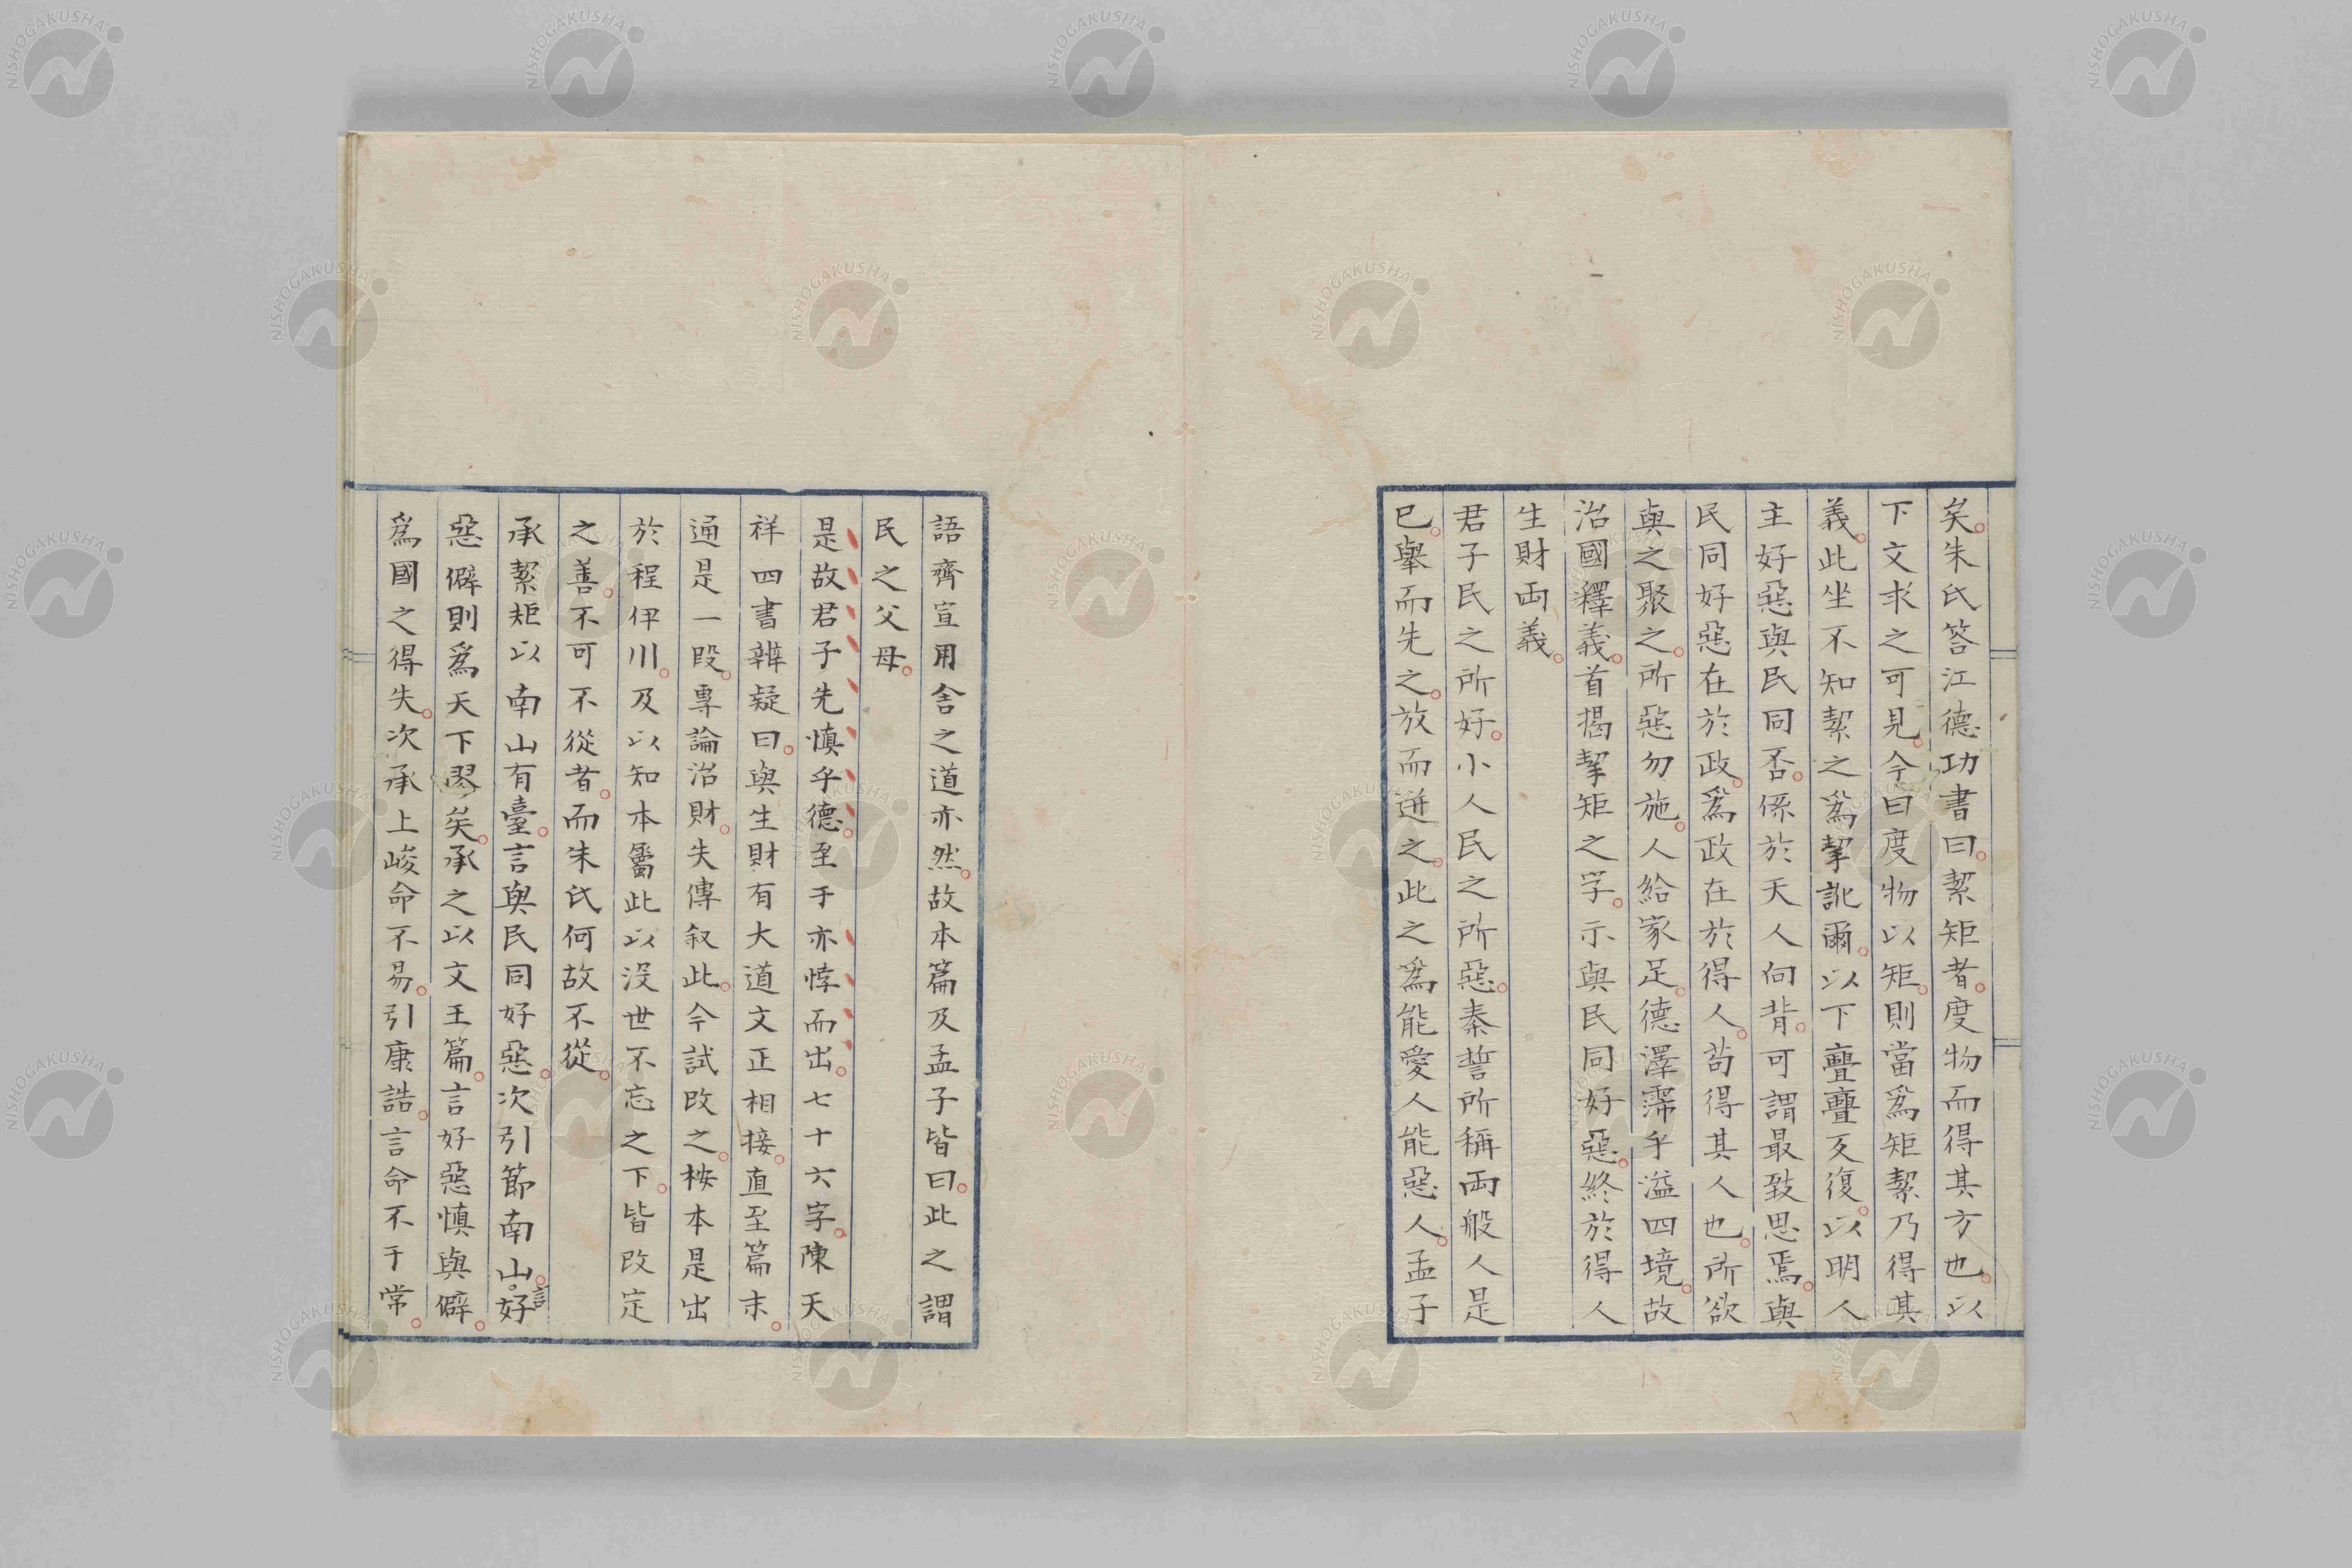 矣。朱氏答江德功書曰。絜矩者。度物而得其方也。以
下文求之可見。今曰度物以矩。則當爲矩絜乃得其
義。此坐不知絜之爲挈訛爾。以下亹亹反復。以明人
主好惡與民同否。係於天人向背。可謂最致思焉。與
民同好惡在於政。爲政在於得人。苟得其人也。所欲
與之聚之。所惡勿施。人給家足。德澤霈乎溢四境。故
治國釋義。首揭挈矩之字。示與民同好惡。終於得人
生財両義。
君子民之所好。小人民之所惡。秦誓所稱両般人是
已。擧而先之。放而迸之。此之爲能愛人能惡人。孟子
語齊宣用舍之道亦然。故本篇及孟子皆曰。此之謂
民之父母。
是故君子先慎乎德。至于亦悖而出。七十六字。陳天
祥四書辨疑曰。與生財有大道文正相接。直至篇末。
通是一段。專論治財。失傳叙此。今試改之。桉本是出
於程伊川。及以知本屬此以沒世不忘之下。皆改定
之善。不可不從者。而朱氏何故不從。
承絜矩以南山有臺。言與民同好惡。次引節南山。言好
惡僻則爲天下僇矣。承之以文王篇。言好惡慎與僻。
爲國之得失。次承上峻命不易。引康誥。言命不于常。
NISHOGAKUSHA